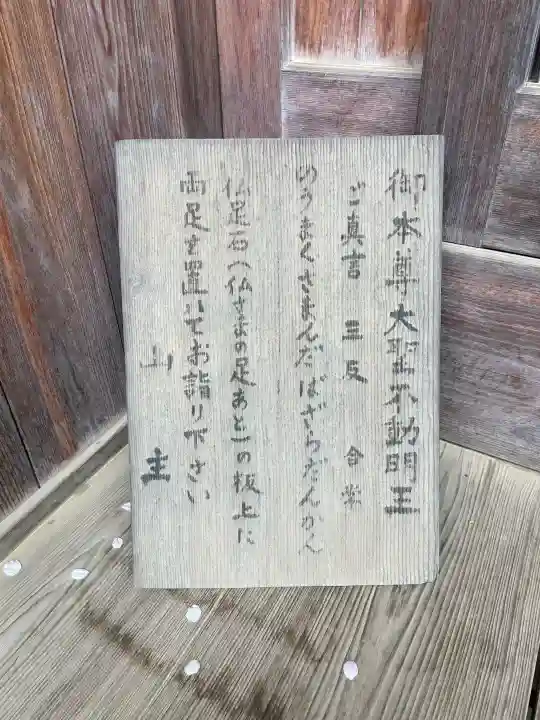 御本尊大聖不動明王
ご真言 三反 合掌
のうまくさまんだばざらだんかん
仏足石(仏さまの足あと)の板上に
両足を置いてお詣り下さい
山主